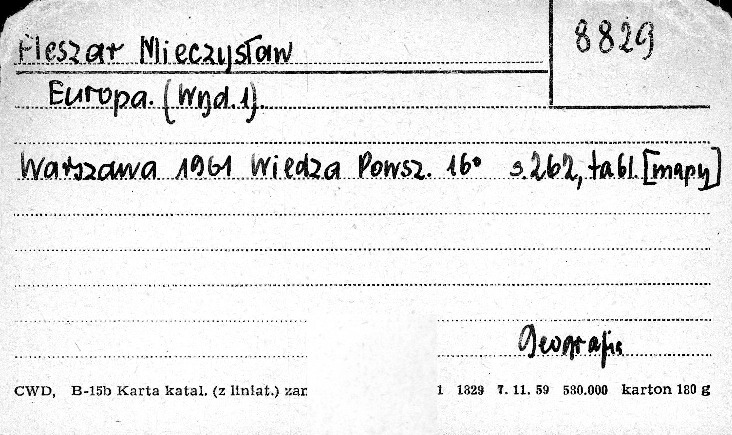 Fleszar Mieczysław
8829
Europa. (Wyd. 1).
Warszawa 1961 Wiedza Powsz. 16° s. 262, tabl. [mapy]
Geografia
CWD, B-15b Karta katal. (z liniat.) zam
1 1829 7. 11. 59 530.000 karton 180 g